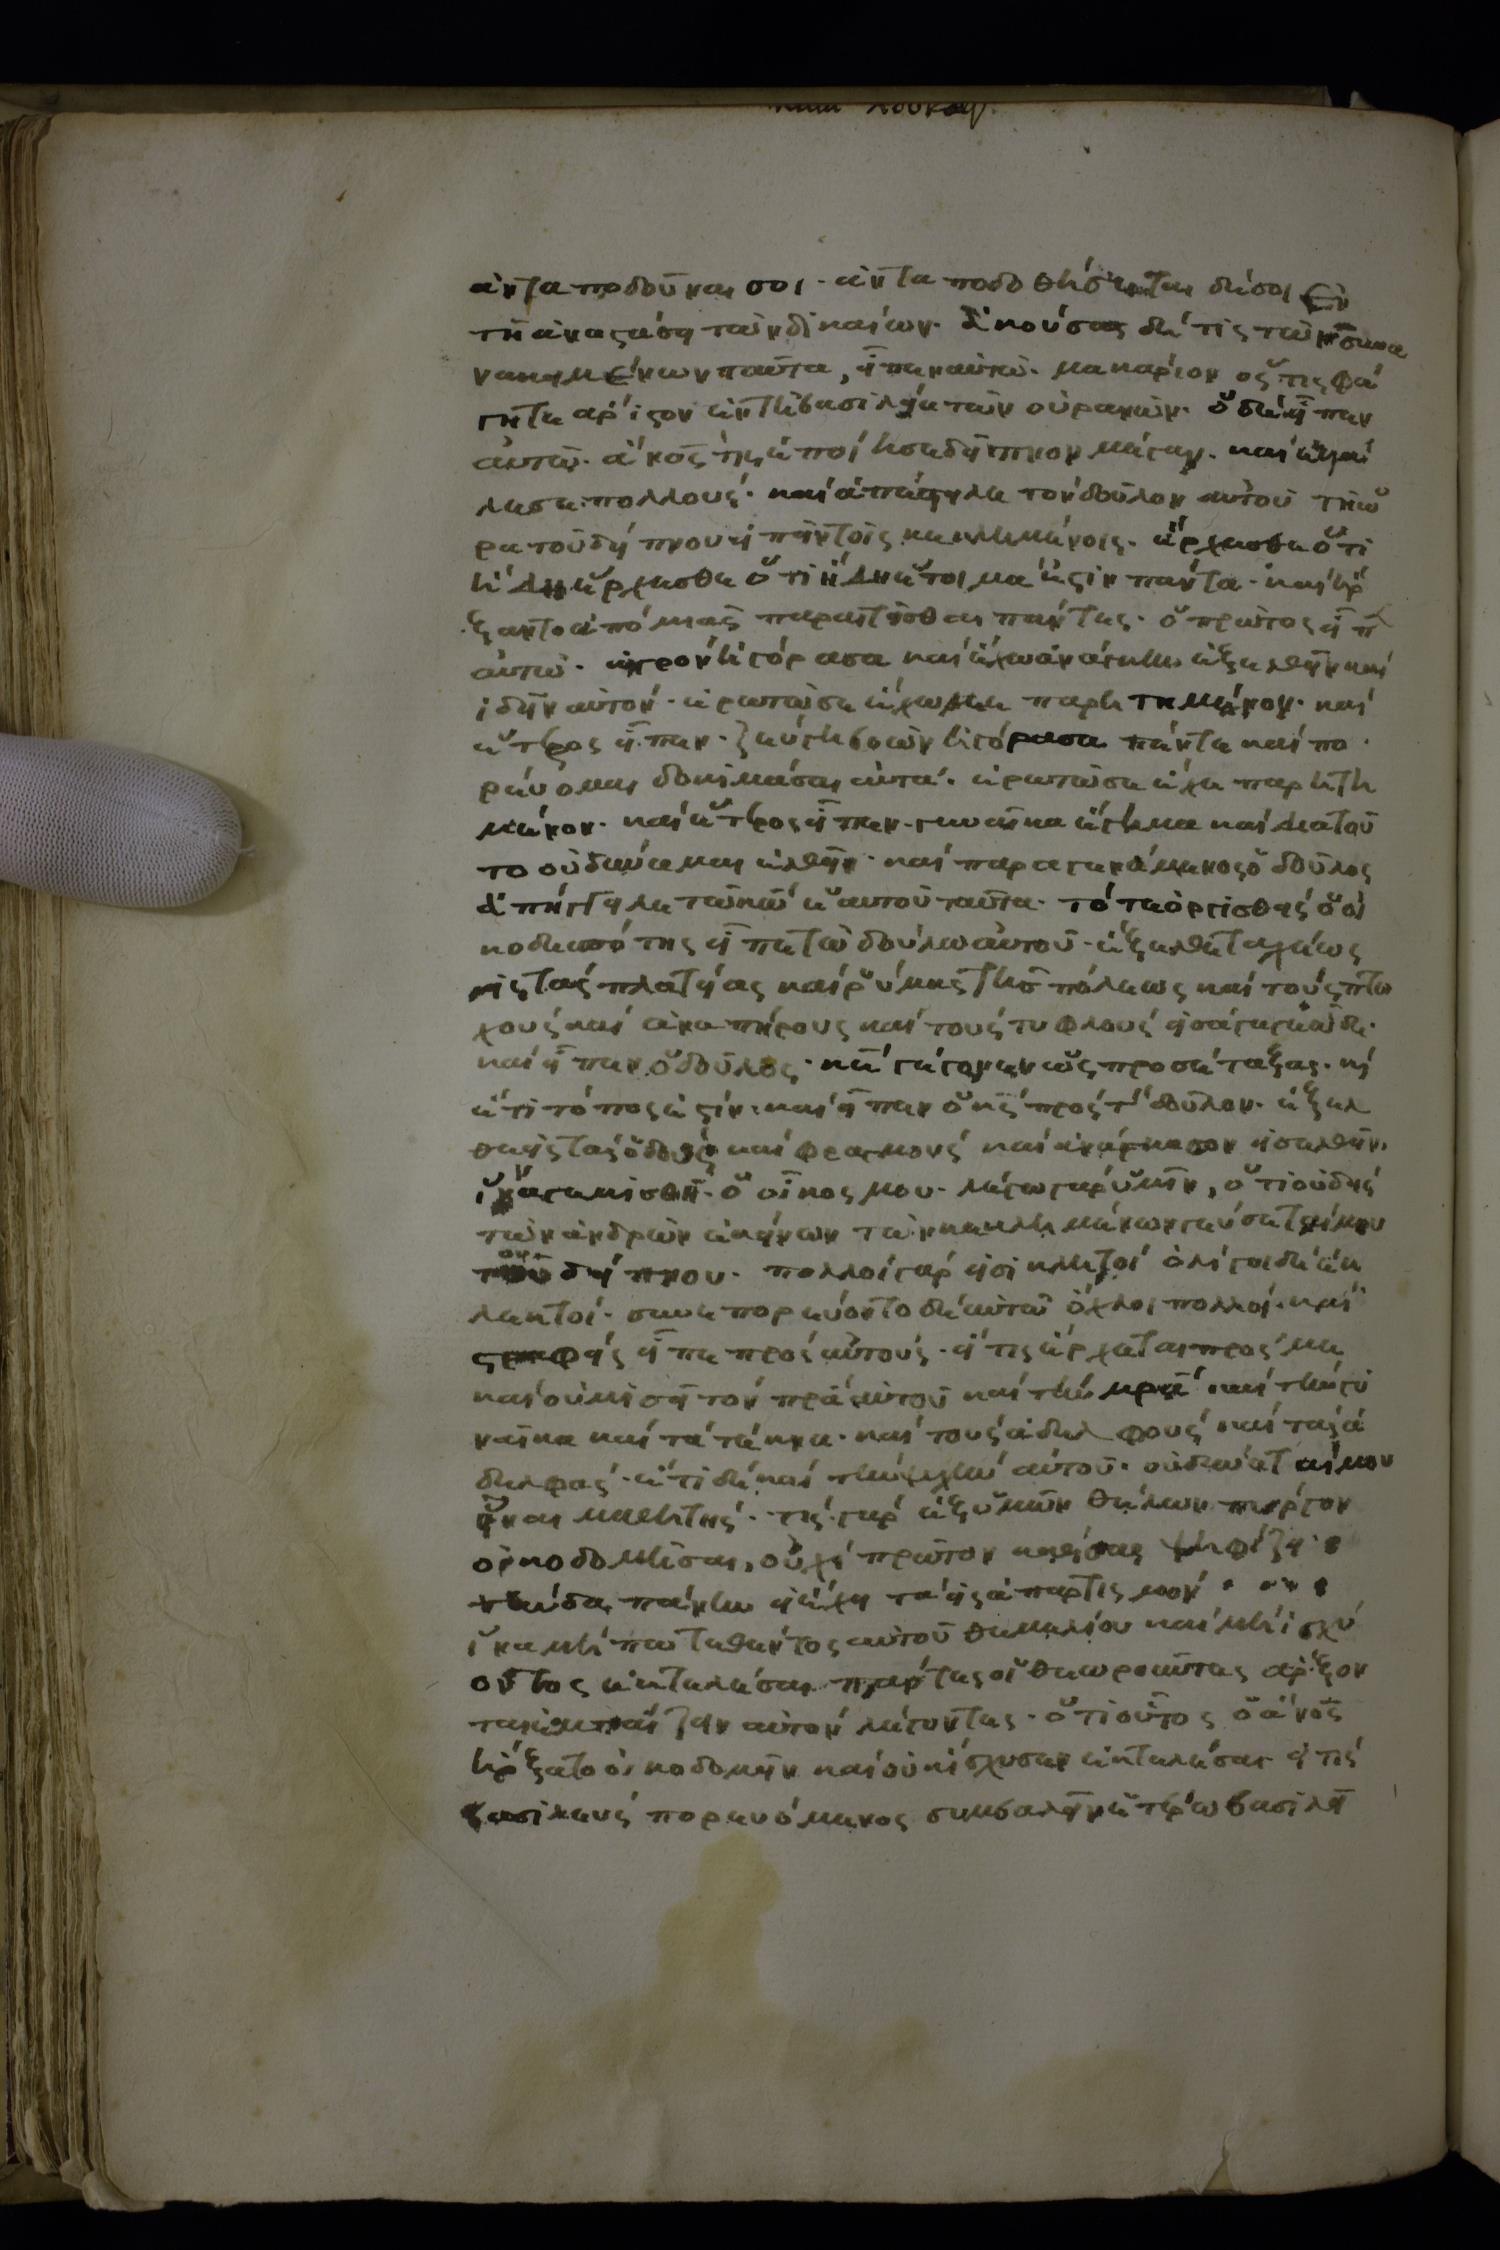 κατα λουκαν
ἀνταποδοῦναι σοι· ἀνταποδοθήσεται δέ σοι ἐν
τῆ ἀναστάσει τῶν δικαίων· ἀκούσας δέ τις τῶν συνα
νακειμένων ταῦτα, εἶπεν αὐτῶ· μακάριος ὅστις φά
γεται ἄριστον ἐν τῆ βασιλεία τῶν οὐρανῶν· ὁ δὲ εἶπεν
αὐτῶ· ἄνος τις ἐποίησε δεῖπνον μέγαν· καὶ ἐκά
λεσε πολλούς· καὶ ἀπέστειλε τὸν δοῦλον αὐτοῦ τῆ ὥ
ρα τοῦ δείπνου εἰπεῖν τοῖς κεκλημένοις· ἔρχεσθε ὅτι
ἤδη ἕτοιμα ἐστιν πάντα· καὶ ἤρ
ξαντο ἀπὸ μιᾶς παραιτεῖσθαι πάντες· ὁ πρῶτος εἶπ
αὐτῶ· ἀγρὸν ἠγόρασα καὶ ἔχω ἀνάγκην ἐξελθεῖν καὶ
ἰδεῖν αὐτόν· ἐρωτῶ σε ἔχε με παρητημένον· καὶ
ἕτερος εἶπεν· ζεύγη βοῶν ἠγόρασα πέντε καὶ πο
ρεύομαι δοκιμάσαι αὐτά· ἐρωτῶ σε ἔχε παρητη
μένον· καὶ ἕτερος εἶπεν· γυναῖκα ἔγημα καὶ διατοῦ
το οὐ δύναμαι ἐλθεῖν· καὶ παραγενόμενος ὁ δοῦλος
ἀπήγγειλε τῶ κω ἑαυτοῦ ταῦτα· τότε ὀργισθεὶς ὁ οἰ
κοδεσπότης εἶπε τῶ δούλω αὐτοῦ· ἔξελθε ταχέως
εἰς τὰς πλατείας καὶ ῥύμας τῆς πόλεως καὶ τοὺς πτω
χοὺς καὶ ἀναπήρους καὶ τοὺς τυφλοὺς εἰσάγαγε ὧδε·
καὶ εἶπεν ὁ δοῦλος· κε γέγονεν ὡς προσέταξας· κ
ἔτι τόπος ἐστίν· καὶ εἶπεν ὁ κς πρὸς τ δοῦλον· ἔξελ
θε εἰς τὰς ὁδοὺς καὶ φραγμοὺς καὶ ἀνάγκασον εἰσελθεῖν,
ἵνα γεμισθῆ· ὁ οἶκος μου· λέγω γὰρ ὑμῖν, ὅτι οὐδεὶς
τῶν ἀνδρῶν ἐκείνων τῶν κεκλημένων γεύσεταί μου
τοῦ δείπνου· πολλοὶ γάρ εἰσι κλητοὶ ὀλίγοι δὲ ἐκ
λεκτοί· συνεπορεύοντο δὲ αὐτῶ ὄχλοι πολλοί· καὶ
στραφεὶς εἶπε πρὸς αὐτούς· εἴ τις ἔρχεται πρός με
καὶ οὐ μισεῖ τὸν πρα αὐτοῦ καὶ τὴν μρα καὶ τὴν γυ
ναῖκα καὶ τὰ τέκνα· καὶ τοὺς ἀδελφοὺς καὶ τὰς ἀ
δελφάς· ἔτι δὲ καὶ τὴν ψυχὴν αὐτοῦ· οὐ δύναταί μου
εἶναι μαθητής· τίς γὰρ ἐξ ὑμῶν θέλων πύργον
οἰκοδομῆσαι, οὐχὶ πρῶτον καθίσας ψηφίζει
τὴν δαπάνην εἰ ἔχει τὰ εἰς ἀπαρτισμόν
ἵνα μήποτε θέντος αὐτοῦ θεμέλιον καὶ μὴ ἰσχύ
οντος ἐκτελέσαι πάντες οἱ θεωροῦντες ἄρξον
ται ἐμπαίζειν αὐτὸν λέγοντες· ὅτι οὗτος ὁ ἄνος
ἤρξατο οἰκοδομεῖν καὶ οὐκ ἴσχυσεν ἐκτελέσαι· ἢ τίς
βασιλεὺς πορευόμενος συμβαλεῖν ἑτέρω βασιλεῖ